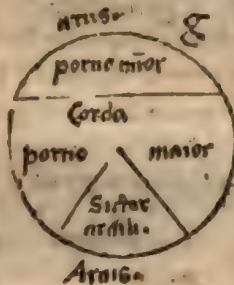 arcus.
g
portio mĩor
Corda
portio maior
Sector
circuli.
Arcus.